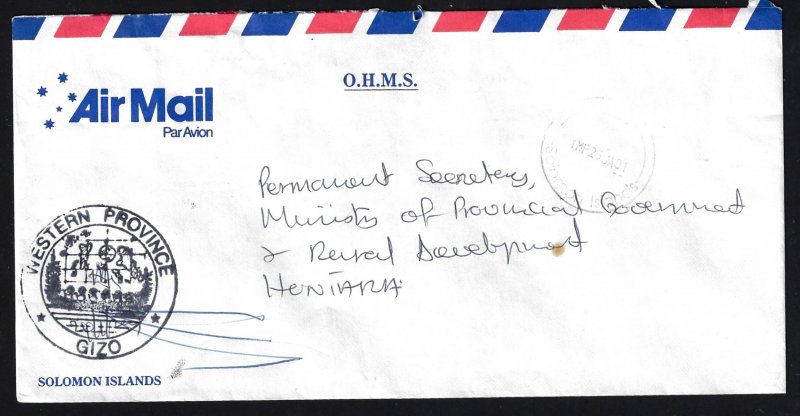 O.H.M.S.
Air Mail
Par Avion
Permanent Secretary,
Ministry of Provincial Government
& Rural Development
HONIARA
WESTERN PROVINCE
GIZO
SOLOMON ISLANDS